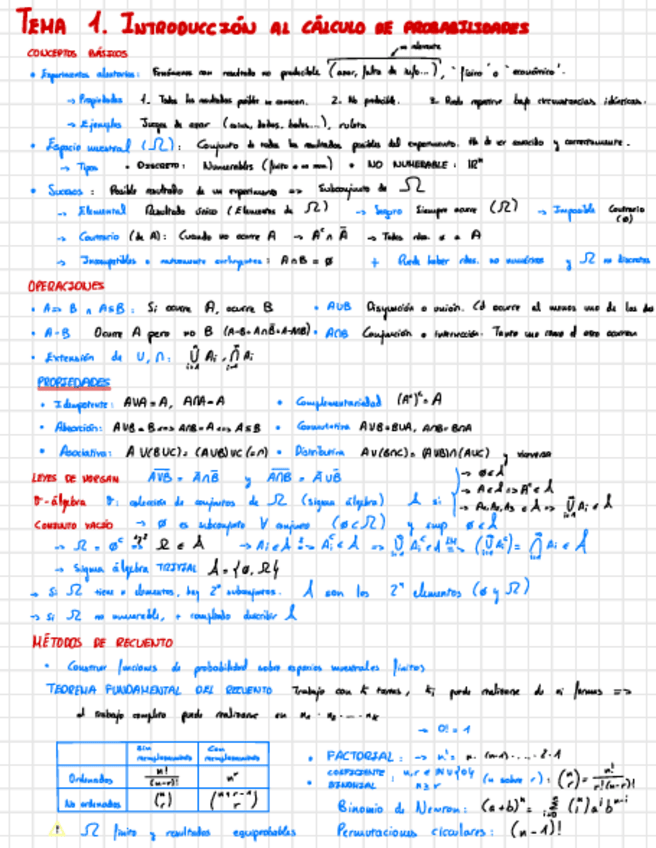 TEMA 1. INTRODUCCIÓN AL CÁLCULO DE PROBABILIDADES
CONCEPTOS BÁSICOS
• Experimentos aleatorios: Fenómenos con resultado no predecible (azar, falta de info...), "físico" o "económico".
→ Propiedades 1. Todos los resultados posibles se conocen. 2. No predecible. 3. Puede repetirse bajo circunstancias idénticas.
→ Ejemplos Juegos de azar (dados, bolas...), ruleta
• Espacio muestral (Ω): Conjunto de todos los resultados posibles del experimento. Ha de ser conocido y correctamente.
→ Tipos • DISCRETO: Numerables (finito o no) • NO NUMERABLE: ℝⁿ
• Sucesos: Posible resultado de un experimento => Subconjunto de Ω
→ Elemental Resultado único (Elementos de Ω) → Seguro Siempre ocurre (Ω) → Imposible Contrario (ø)
→ Contrario (de A): Cuando no ocurre A → Aᶜ ∩ Ā → Todos A
→ Incompatibles o mutuamente excluyentes: A∩B = ø + Puede haber no numéricos y Ω no discretos
OPERACIONES
• A=> B ∩ A⊆B: Si ocurre A, ocurre B • A∪B Disyunción o unión. Cd ocurre al menos uno de los dos
• A-B Ocurre A pero no B • A∩B Conjunción o intersección. Tanto uno como el otro ocurren
• Extensión de ∪, ∩: ∪ Ai, ∩ Ai
PROPIEDADES
• Idempotente: A∪A = A, A∩A = A • Complementariedad (Aᶜ)ᶜ = A
• Absorción: A∪B = B <=> A∩B = A <=> A⊆B • Conmutativa A∪B = B∪A, A∩B = B∩A
• Asociativa: A∪(B∪C) = (A∪B)∪C (=∩) • Distributiva A∪(B∩C) = (A∪B)∩(A∪C) y viceversa
LEYES DE MORGAN
σ-álgebra colección de conjuntos de Ω (sigma álgebra) si
CONJUNTO VACÍO → ø es subconjunto ∀ conjunto (ø⊂Ω) y
→ Sigma álgebra TRIVIAL A = {ø, Ω}
→ Si Ω tiene n elementos, hay 2ⁿ subconjuntos. A son los 2ⁿ elementos (ø y Ω)
→ Si Ω no numerable, + complicado describir A
MÉTODOS DE RECUENTO
• Construir funciones de probabilidad sobre espacios muestrales finitos
TEOREMA FUNDAMENTAL DEL RECUENTO Trabajo con k tareas, ki puede realizarse de ni formas =>
el trabajo completo puede realizarse en n₁ · n₂ · ... · nₖ
→ 0! = 1
Sin reemplazamiento Con reemplazamiento
Ordenados n!/(n-r)! nʳ
No ordenados (n r) (n+r-1 r)
• FACTORIAL: → n! = n·(n-1)·...·2·1
• COEFICIENTE BINOMIAL: n,r ∈ ℕ∪{0} n≥r (n sobre r): (n r) = n!/r!(n-r)!
Binomio de Newton: (a+b)ⁿ = Σ (n i) aⁱ bⁿ⁻ⁱ
! Ω finito y resultados equiprobables
Permutaciones circulares: (n-1)!